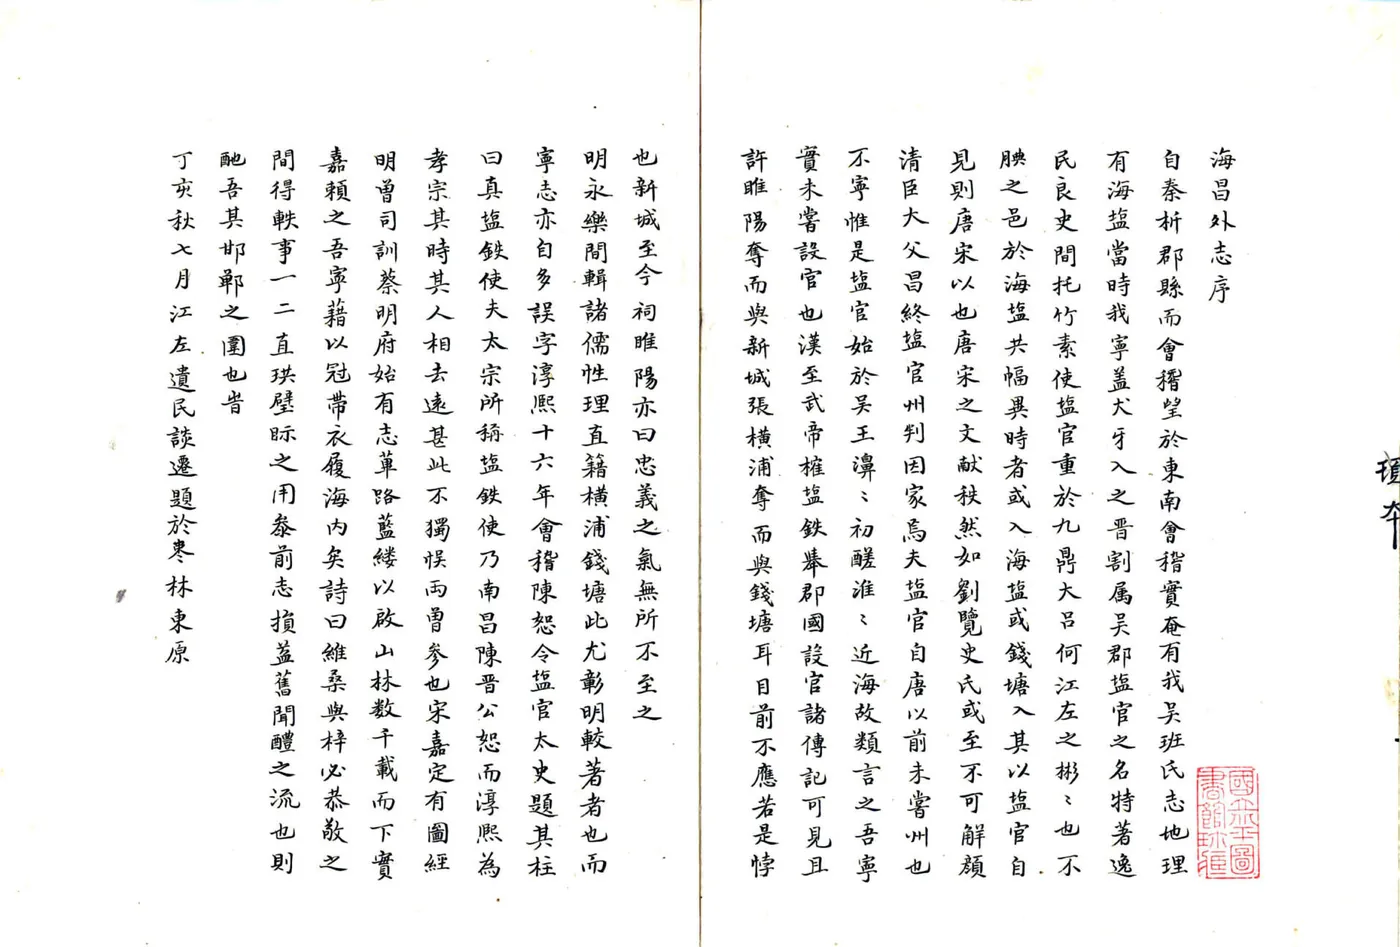 海昌外志序
自秦析郡縣而會稽望於東南會稽實奄有我吴班氏志地理
有海塩當時我寧盖犬牙入之晋割属吴郡塩官之名特著逸
民良史間托竹素使塩官重於九鼎大吕何江左之彬〻也不
腆之邑於海塩共幅異時者或入海塩或錢塘入其以塩官自
見則唐宋以也唐宋之文献秩然如劉覽史氏或至不可解顔
清臣大父昌終塩官州判因家焉夫塩官自唐以前未嘗州也
不寧惟是塩官始於吴王濞〻初醝淮〻近海故類言之吾寧
實未嘗設官也漢至武帝榷塩鉄舉郡國設官諸傳記可見且
許睢陽奪而與新城張横浦奪而與錢塘耳目前不應若是悖
也新城至今祠睢陽亦曰忠義之氣無所不至之
明永樂間輯諸儒性理直籍横浦錢塘此尤彰明較著者也而
寧志亦自多誤字淳熙十六年會稽陳恕令塩官太史題其柱
曰真塩鉄使夫太宗所稱塩鉄使乃南昌陳晋公恕而淳熙為
孝宗其時其人相去遠甚此不獨悞両曽參也宋嘉定有圖經
明曽司訓蔡明府始有志蓽路藍縷以啟山林数千載而下實
嘉頼之吾寧藉以冠帶衣履海内矣詩曰維桑與梓必恭敬之
間得軼事一二直珙璧眎之用叅前志損葢舊聞醴之流也則
酏吾其邯鄲之圍也峕
丁亥秋七月江左遺民談遷題於棗林東原
國立北平圖書館珍藏